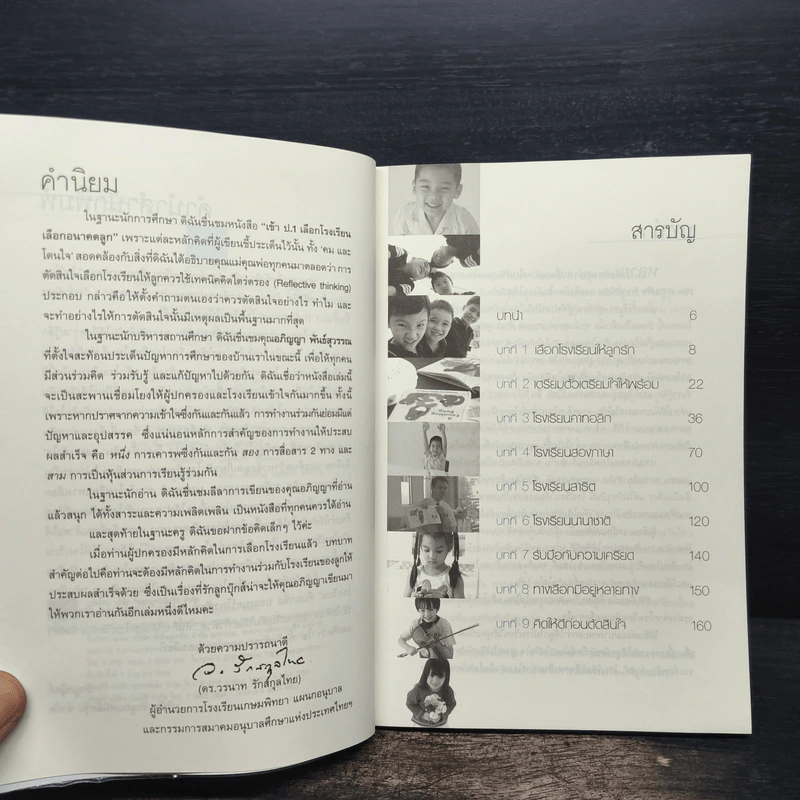 คำนิยม
ในฐานะนักการศึกษา ดิฉันชื่นชมหนังสือ "เข้า ป.1 เลือกโรงเรียน
เลือกอนาคตลูก" เพราะแต่ละหลักคิดที่ผู้เขียนชี้ประเด็นไว้นั้น ทั้ง 'คม และ
โดนใจ' สอดคล้องกับสิ่งที่ดิฉันได้อธิบายคุณแม่คุณพ่อทุกคนมาตลอดว่า การ
ตัดสินใจเลือกโรงเรียนให้ลูกควรใช้เทคนิคคิดไตร่ตรอง (Reflective thinking)
ประกอบ กล่าวคือให้ตั้งคำถามตนเองว่าควรตัดสินใจอย่างไร ทำไม และ
จะทำอย่างไรให้การตัดสินใจนั้นมีเหตุผลเป็นพื้นฐานมากที่สุด
ในฐานะนักบริหารสถานศึกษา ดิฉันชื่นชมคุณอภิญญา พันธ์สุวรรณ
ที่ตั้งใจสะท้อนประเด็นปัญหาการศึกษาของบ้านเราในขณะนี้ เพื่อให้ทุกคน
มีส่วนร่วมคิด ร่วมรับรู้ และแก้ปัญหาไปด้วยกัน ดิฉันเชื่อว่าหนังสือเล่มนี้
จะเป็นสะพานเชื่อมโยงให้ผู้ปกครองและโรงเรียนเข้าใจกันมากขึ้น ทั้งนี้
เพราะหากปราศจากความเข้าใจซึ่งกันและกันแล้ว การทำงานร่วมกันย่อมมีแต่
ปัญหาและอุปสรรค ซึ่งแน่นอนหลักการสำคัญของการทำงานให้ประสบ
ผลสำเร็จ คือ หนึ่ง การเคารพซึ่งกันและกัน สอง การสื่อสาร 2 ทาง และ
สาม การเป็นหุ้นส่วนการเรียนรู้ร่วมกัน
ในฐานะนักอ่าน ดิฉันชื่นชมลีลาการเขียนของคุณอภิญญาที่อ่าน
แล้วสนุก ได้ทั้งสาระและความเพลิดเพลิน เป็นหนังสือที่ทุกคนควรได้อ่าน
และสุดท้ายในฐานะครู ดิฉันขอฝากข้อคิดเล็กๆ ไว้ค่ะ
เมื่อท่านผู้ปกครองมีหลักคิดในการเลือกโรงเรียนแล้ว บทบาท
สำคัญต่อไปคือท่านจะต้องมีหลักคิดในการทำงานร่วมกับโรงเรียนของลูกให้
ประสบผลสำเร็จด้วย ซึ่งเป็นเรื่องที่รักลูกบุ๊กส์น่าจะให้คุณอภิญญาเขียนมา
ให้พวกเราอ่านกันอีกเล่มหนึ่งดีไหมคะ
ด้วยความปรารถนาดี
(ดร.วรนาท รักสกุลไทย)
ผู้อำนวยการโรงเรียนเกษมพิทยา แผนกอนุบาล
และกรรมการสมาคมอนุบาลศึกษาแห่งประเทศไทยฯ
สารบัญ
บทนำ 6
บทที่ 1 เลือกโรงเรียนให้ลูกรัก 8
บทที่ 2 เตรียมตัวเตรียมใจให้พร้อม 22
บทที่ 3 โรงเรียนคาทอลิก 36
บทที่ 4 โรงเรียนสองภาษา 70
บทที่ 5 โรงเรียนสาธิต 100
บทที่ 6 โรงเรียนนานาชาติ 120
บทที่ 7 รับมือกับความเครียด 140
บทที่ 8 ทางเลือกมีอยู่หลายทาง 150
บทที่ 9 คิดให้ดีก่อนตัดสินใจ 160